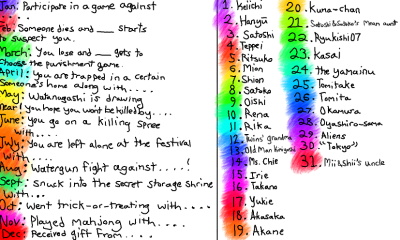 Jan: Participate in a game against
Feb: Someone dies and ___ starts
to suspect you.
March: You lose and ___ gets to
choose the punishment game.
April: you are trapped in a certain
Someone's home along with....
May: Watanagashi is drawing
near! you hope you won't be killed by....
June: you go on a killing spree
with....
July: You are left alone at the festival
with....
Aug: Watergun fight against.....!
Sept: Snuck into the secret storage shrine
with...
Oct: Went trick-or-treating with....
Nov: Played mahjong with....
Dec: Received gift from....
1. Keiichi
2. Hanyū
3. Satoshi
4. Teppei
5. Ritsuko
6. Mion
7. Shion
8. Satoko
9. Oishi
10. Rena
11. Rika
12. Twins' grandma
13. Old Man Kimiyoshi
14. Ms. Chie
15. Irie
16. Takano
17. Yukie
18. Akasaka
19. Akane
20. Kuna-chan
21. Satoshi & Satoko's Mean aunt
22. Ryukishi07
23. Kasai
24. the yamainu
25. Tomitake
26. Tomita
27. Okamura
28. Oyashiro-sama
29. Aliens
30. "Tokyo"
31. Mii & Shii's uncle